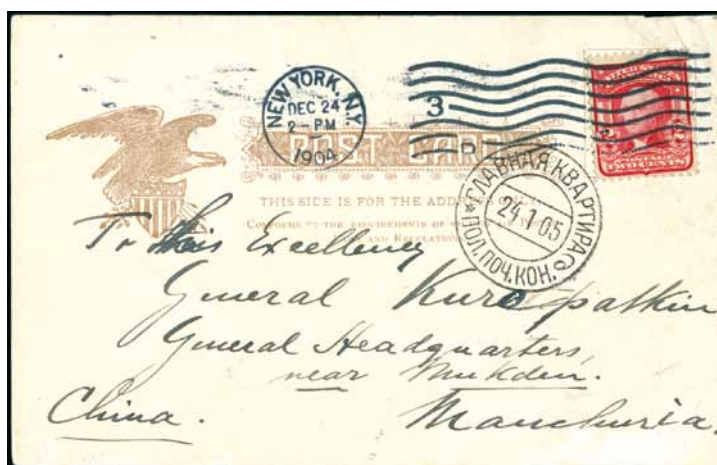 NEW YORK, N.Y.
DEC 24
2-PM
1904
3
POST CARD
THIS SIDE IS FOR THE ADDRESS ONLY
CONFORMS TO THE REQUIREMENTS OF
AND REGULATION
POSTAGE
TWO CENTS
ГЛАВНАЯ КВАРТИРА
24.1.05
ПОЛ. ПОЧ. КОН.
To His Excellency
General Kuropatkin
General Headquarters,
near Mukden.
China.
Manchuria.